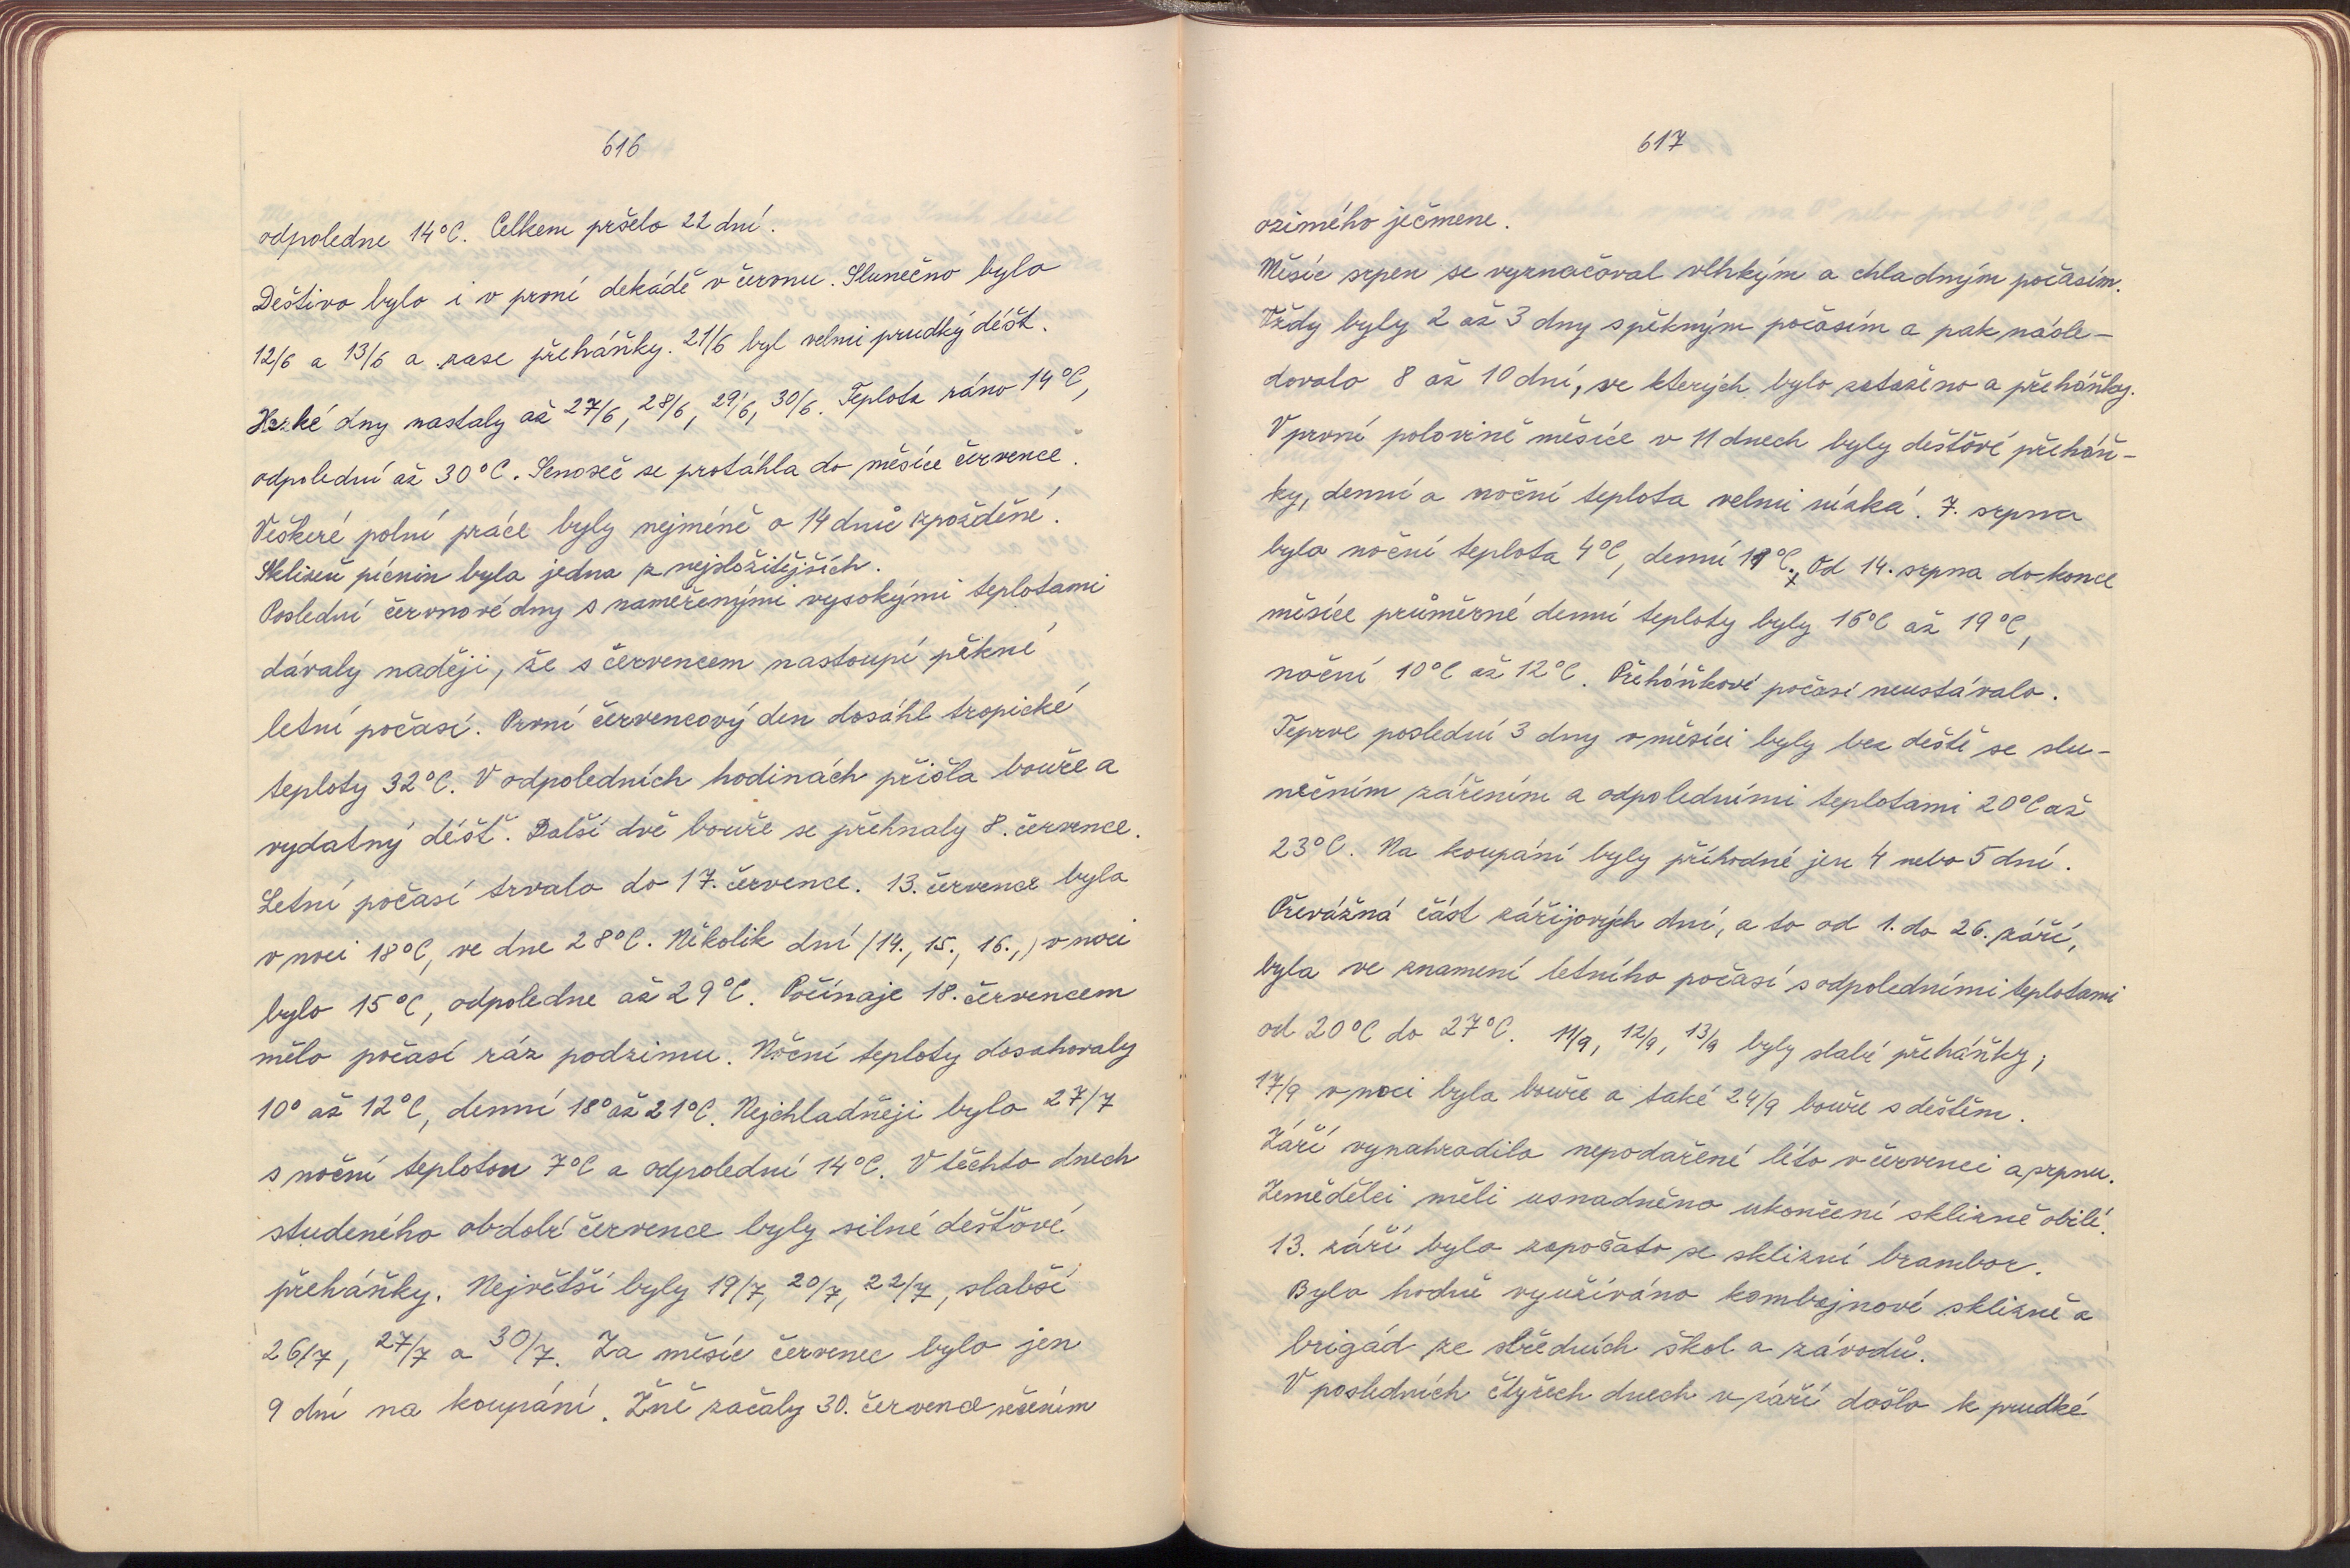 616
odpoledne 14°C. Celkem pršelo 22 dní.
Deštivo bylo i v první dekádě v červnu. Slunečno bylo
12/6 a 13/6 a zase přeháňky. 21/6 byl velmi prudký déšt.
Hezké dny nastaly až 27/6, 28/6, 29/6, 30/6. Teplota ráno 14°C,
odpolední až 30°C. Senoseč se protáhla do měsíce července.
Veškeré polní práce byly nejméně o 14 dnů zpožděné.
Sklizeň pícnin byla jedna z nejsložitějších.
Poslední červnové dny s naměřenými vysokými teplotami
dávaly naději, že s červencem nastoupí pěkné
letní počasí. První červencový den dosáhl tropické
teploty 32°C. V odpoledních hodinách přišla bouře a
vydatný déšť. Další dvě bouře se přehnaly 8. července.
Letní počasí trvalo do 17. července. 13. července byla
v noci 18°C, ve dne 28°C. Několik dní (14., 15., 16.,) v noci
bylo 15°C, odpoledne až 29°C. Počínaje 18. červencem
mělo počasí ráz podzimu. Noční teploty dosahovaly
10° až 12°C, denní 18° až 21°C. Nejchladněji bylo 27/7
s noční teplotou 7°C a odpolední 14°C. V těchto dnech
studeného období července byly silné dešťové
přeháňky. Největší byly 19/7, 20/7, 22/7, slabší
26/7, 27/7 a 30/7. Za měsíc červenec bylo jen
9 dní na koupání. Žně začaly 30. července sečením
617
ozimého ječmene.
Měsíc srpen se vyznačoval vlhkým a chladným počasím.
Vždy byly 2 až 3 dny s pěkným počasím a pak násle-
dovalo 8 až 10 dní, ve kterých bylo zataženo a přeháňky.
V první polovině měsíce v 11 dnech byly dešťové přeháň-
ky, denní a noční teplota velmi nízká. 7. srpna
byla noční teplota 4°C, denní 19°C. Od 14. srpna do konce
měsíce průměrné denní teploty byly 16°C až 19°C,
noční 10°C až 12°C. Přeháňkové počasí neustávalo.
Teprve poslední 3 dny v měsíci byly bez deště se slu-
nečním zářením a odpoledními teplotami 20°C až
23°C. Na koupání byly příhodné jen 4 nebo 5 dní.
Převážná část zářijových dní, a to od 1. do 26. září,
byla ve znamení letního počasí s odpoledními teplotami
od 20°C do 27°C. 11/9, 12/9, 13/9 byly slabé přeháňky;
17/9 v noci byla bouře a také 24/9 bouře s deštěm.
Září vynahradilo nepodařené léto v červenci a srpnu.
Zemědělci měli usnadněno ukončení sklizně obilí.
13. září bylo započato se sklizní brambor.
Bylo hodně využíváno kombajnové sklizně a
brigád ze středních škol a závodů.
V posledních čtyřech dnech v září došlo k prudké